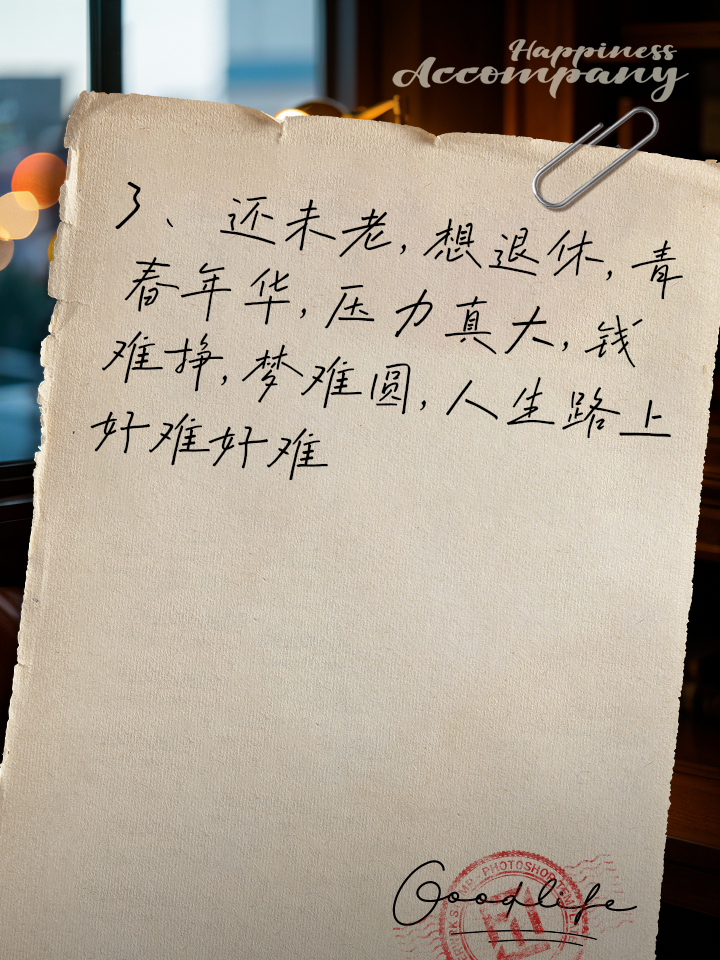 Happiness
Accompany
3、还未老,想退休,青
春年华,压力真大,钱
难挣,梦难圆,人生路上
好难好难
PHOTOSHOP
Goodlife